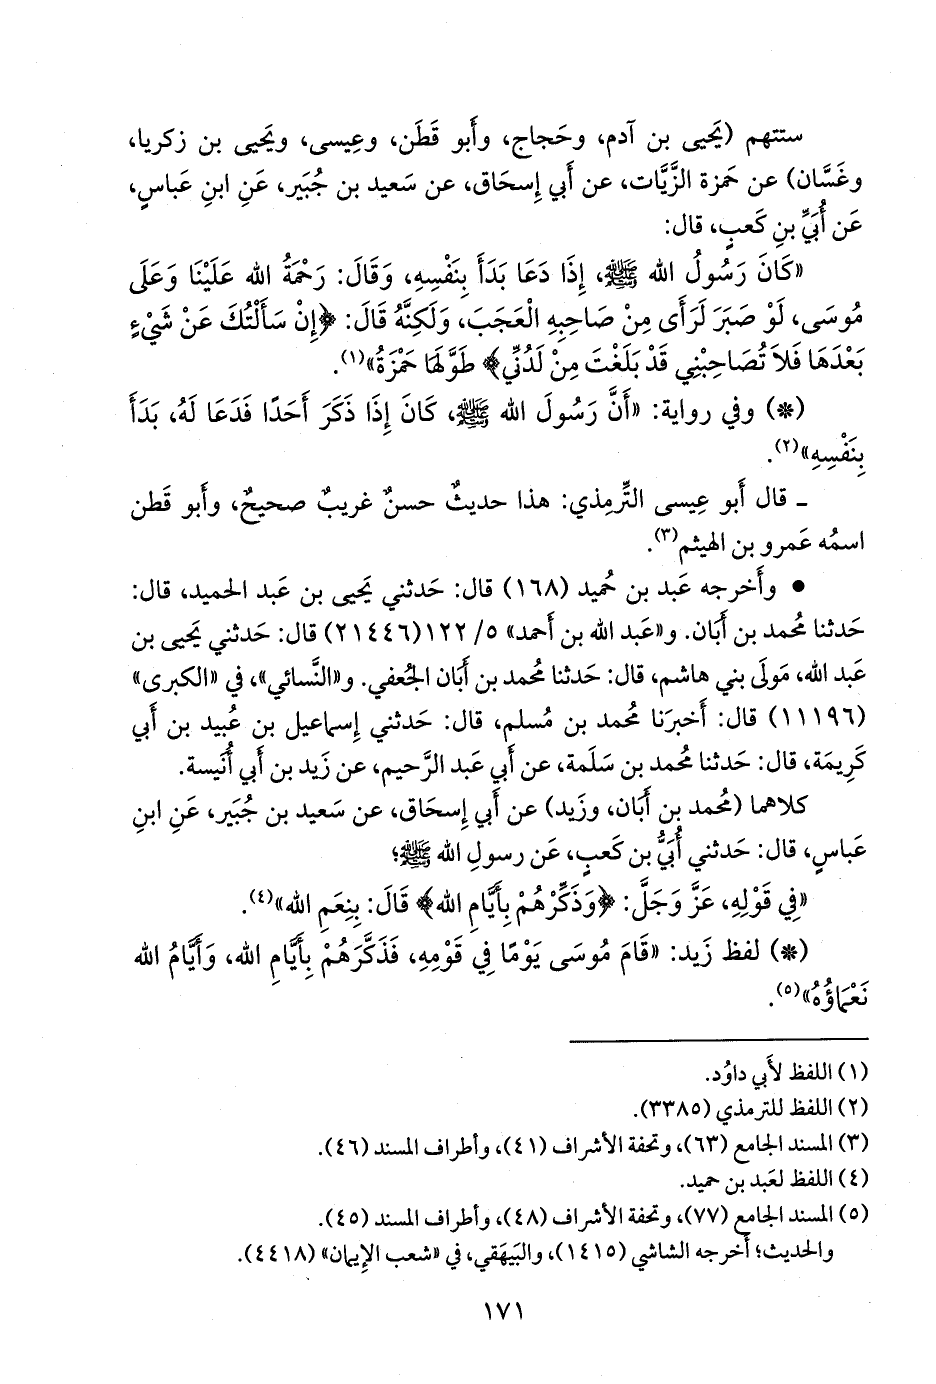 ستتهم (يَحيى بن آدم، وحَجاج، وأَبو قَطَن، وعِيسى، ويَحيى بن زكريا،
وغَسَّان) عن حَمزة الزَّيَّات، عن أَبي إِسحَاق، عن سَعيد بن جُبَير، عَنِ ابنِ عَباسٍ،
عَن أُبَيِّ بنِ كَعبٍ، قال:
«كَانَ رَسُولُ الله ﷺ، إِذَا دَعَا بَدَأَ بِنَفْسِهِ، وَقَالَ: رَحْمَةُ الله عَلَيْنَا وَعَلَى
مُوسَى، لَوْ صَبَرَ لَرَأَى مِنْ صَاحِبِهِ الْعَجَبَ، وَلَكِنَّهُ قَالَ: ﴿إِنْ سَأَلْتُكَ عَنْ شَيْءٍ
بَعْدَهَا فَلاَ تُصَاحِبْنِي قَدْ بَلَغْتَ مِنْ لَدُنِّي﴾ طَوَّلَهَا حَمْزَةُ»(١).
(*) وفي رواية: «أَنَّ رَسُولَ الله ﷺ، كَانَ إِذَا ذَكَرَ أَحَدًا فَدَعَا لَهُ، بَدَأَ
بِنَفْسِهِ»(٢).
ـ قال أَبو عِيسى التِّرمِذي: هذا حديثٌ حسنٌ غريبٌ صحيحٌ، وأَبو قَطن
اسمُه عَمرو بن الهيثم(٣).
• وأَخرجه عَبد بن حُميد (١٦٨) قال: حَدثني يَحيى بن عَبد الحميد، قال:
حَدثنا مُحمد بن أَبَان. و«عَبد الله بن أَحمد» ٥/ ١٢٢(٢١٤٤٦) قال: حَدثني يَحيى بن
عَبد الله، مَولَى بني هاشم، قال: حَدثنا مُحمد بن أَبَان الجُعفي. و«النَّسائي»، في «الكبرى»
(١١١٩٦) قال: أَخبرَنا مُحمد بن مُسلم، قال: حَدثني إِسماعيل بن عُبيد بن أَبي
كَرِيمَة، قال: حَدثنا مُحمد بن سَلَمة، عن أَبي عَبد الرَّحيم، عن زَيد بن أَبي أُنَيسة.
كلاهما (مُحمد بن أَبَان، وزَيد) عن أَبي إِسحَاق، عن سَعيد بن جُبَير، عَنِ ابنِ
عَباسٍ، قال: حَدثني أُبَيُّ بن كَعبٍ، عَن رسولِ الله ﷺ؛
«فِي قَوْلِهِ، عَزَّ وَجَلَّ: ﴿وَذَكِّرْهُمْ بِأَيَّامِ الله﴾ قَالَ: بِنِعَمِ الله»(٤).
(*) لفظ زَيد: «قَامَ مُوسَى يَوْمًا فِي قَوْمِهِ، فَذَكَّرَهُمْ بِأَيَّامِ الله، وَأَيَّامُ الله
نَعْمَاؤُهُ»(٥).
(١) اللفظ لأَبي داوُد.
(٢) اللفظ للترمذي (٣٣٨٥).
(٣) المسند الجامع (٦٣)، وتحفة الأشراف (٤١)، وأطراف المسند (٤٦).
(٤) اللفظ لعَبد بن حميد.
(٥) المسند الجامع (٧٧)، وتحفة الأشراف (٤٨)، وأطراف المسند (٤٥).
والحديث؛ أخرجه الشاشي (١٤١٥)، والبَيهَقي، في «شعب الإِيمان» (٤٤١٨).
١٧١